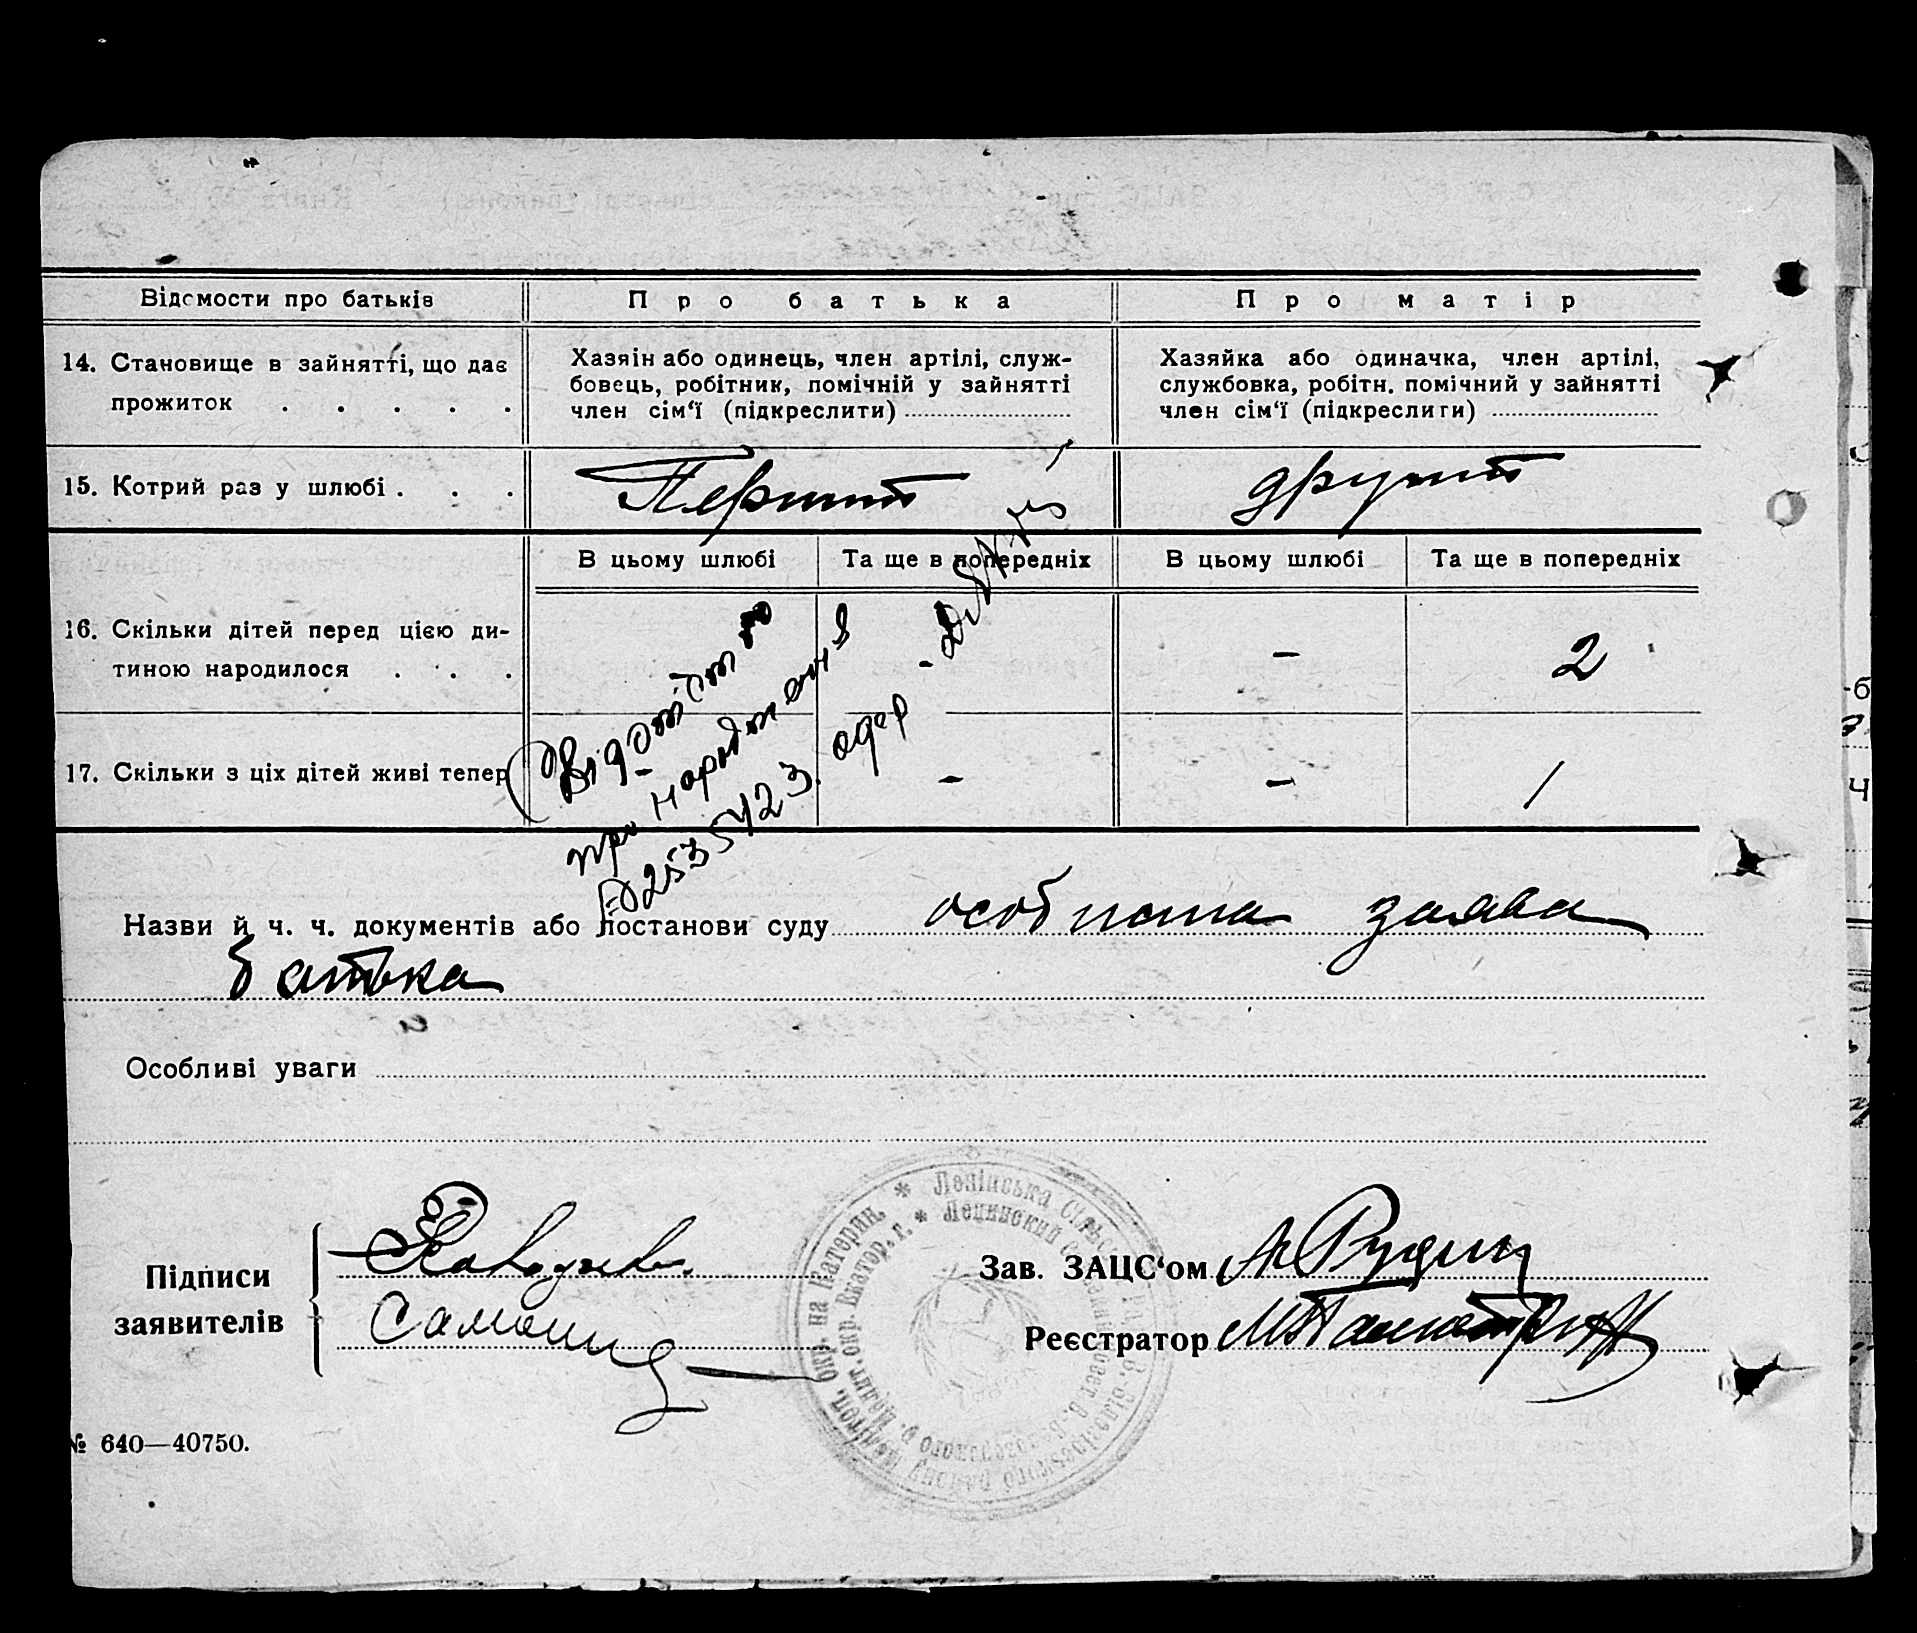 Відомости про батьків
Про батька
Про матір
14. Становище в зайнятті, що дає
прожиток . . . . .
Хазяін або одинець, член артілі, служ-
бовець, робітник, помічній у зайнятті
член сім‘ї (підкреслити)
Хазяйка або одиначка, член артілі,
службовка, робітн. помічний у зайнятті
член сім‘ї (підкреслиги)
15. Котрий раз у шлюбі . . .
Перший
другий
В цьому шлюбі
Та ще в попередніх
В цьому шлюбі
Та ще в попередніх
16. Скільки дітей перед цією ди-
тиною народилося . . .
–
2
17. Скільки з ціх дітей живі тепер
–
–
–
1
про народження
2535423. одер
Назви й ч. ч. документів або постанови суду особиста заява
батька
Особливі уваги
Підписи
заявителів
Зав. ЗАЦС‘ом
Реєстратор
№ 640—40750.